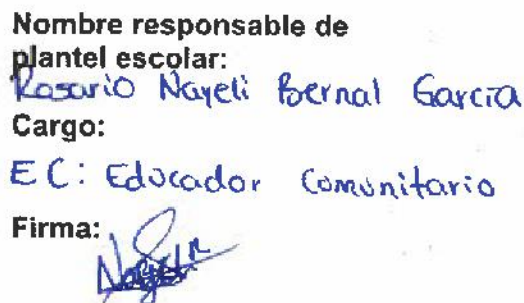 Nombre responsable de
plantel escolar:
Rosario Nayeli Bernal García
Cargo:
EC: Educador Comunitario
Firma: